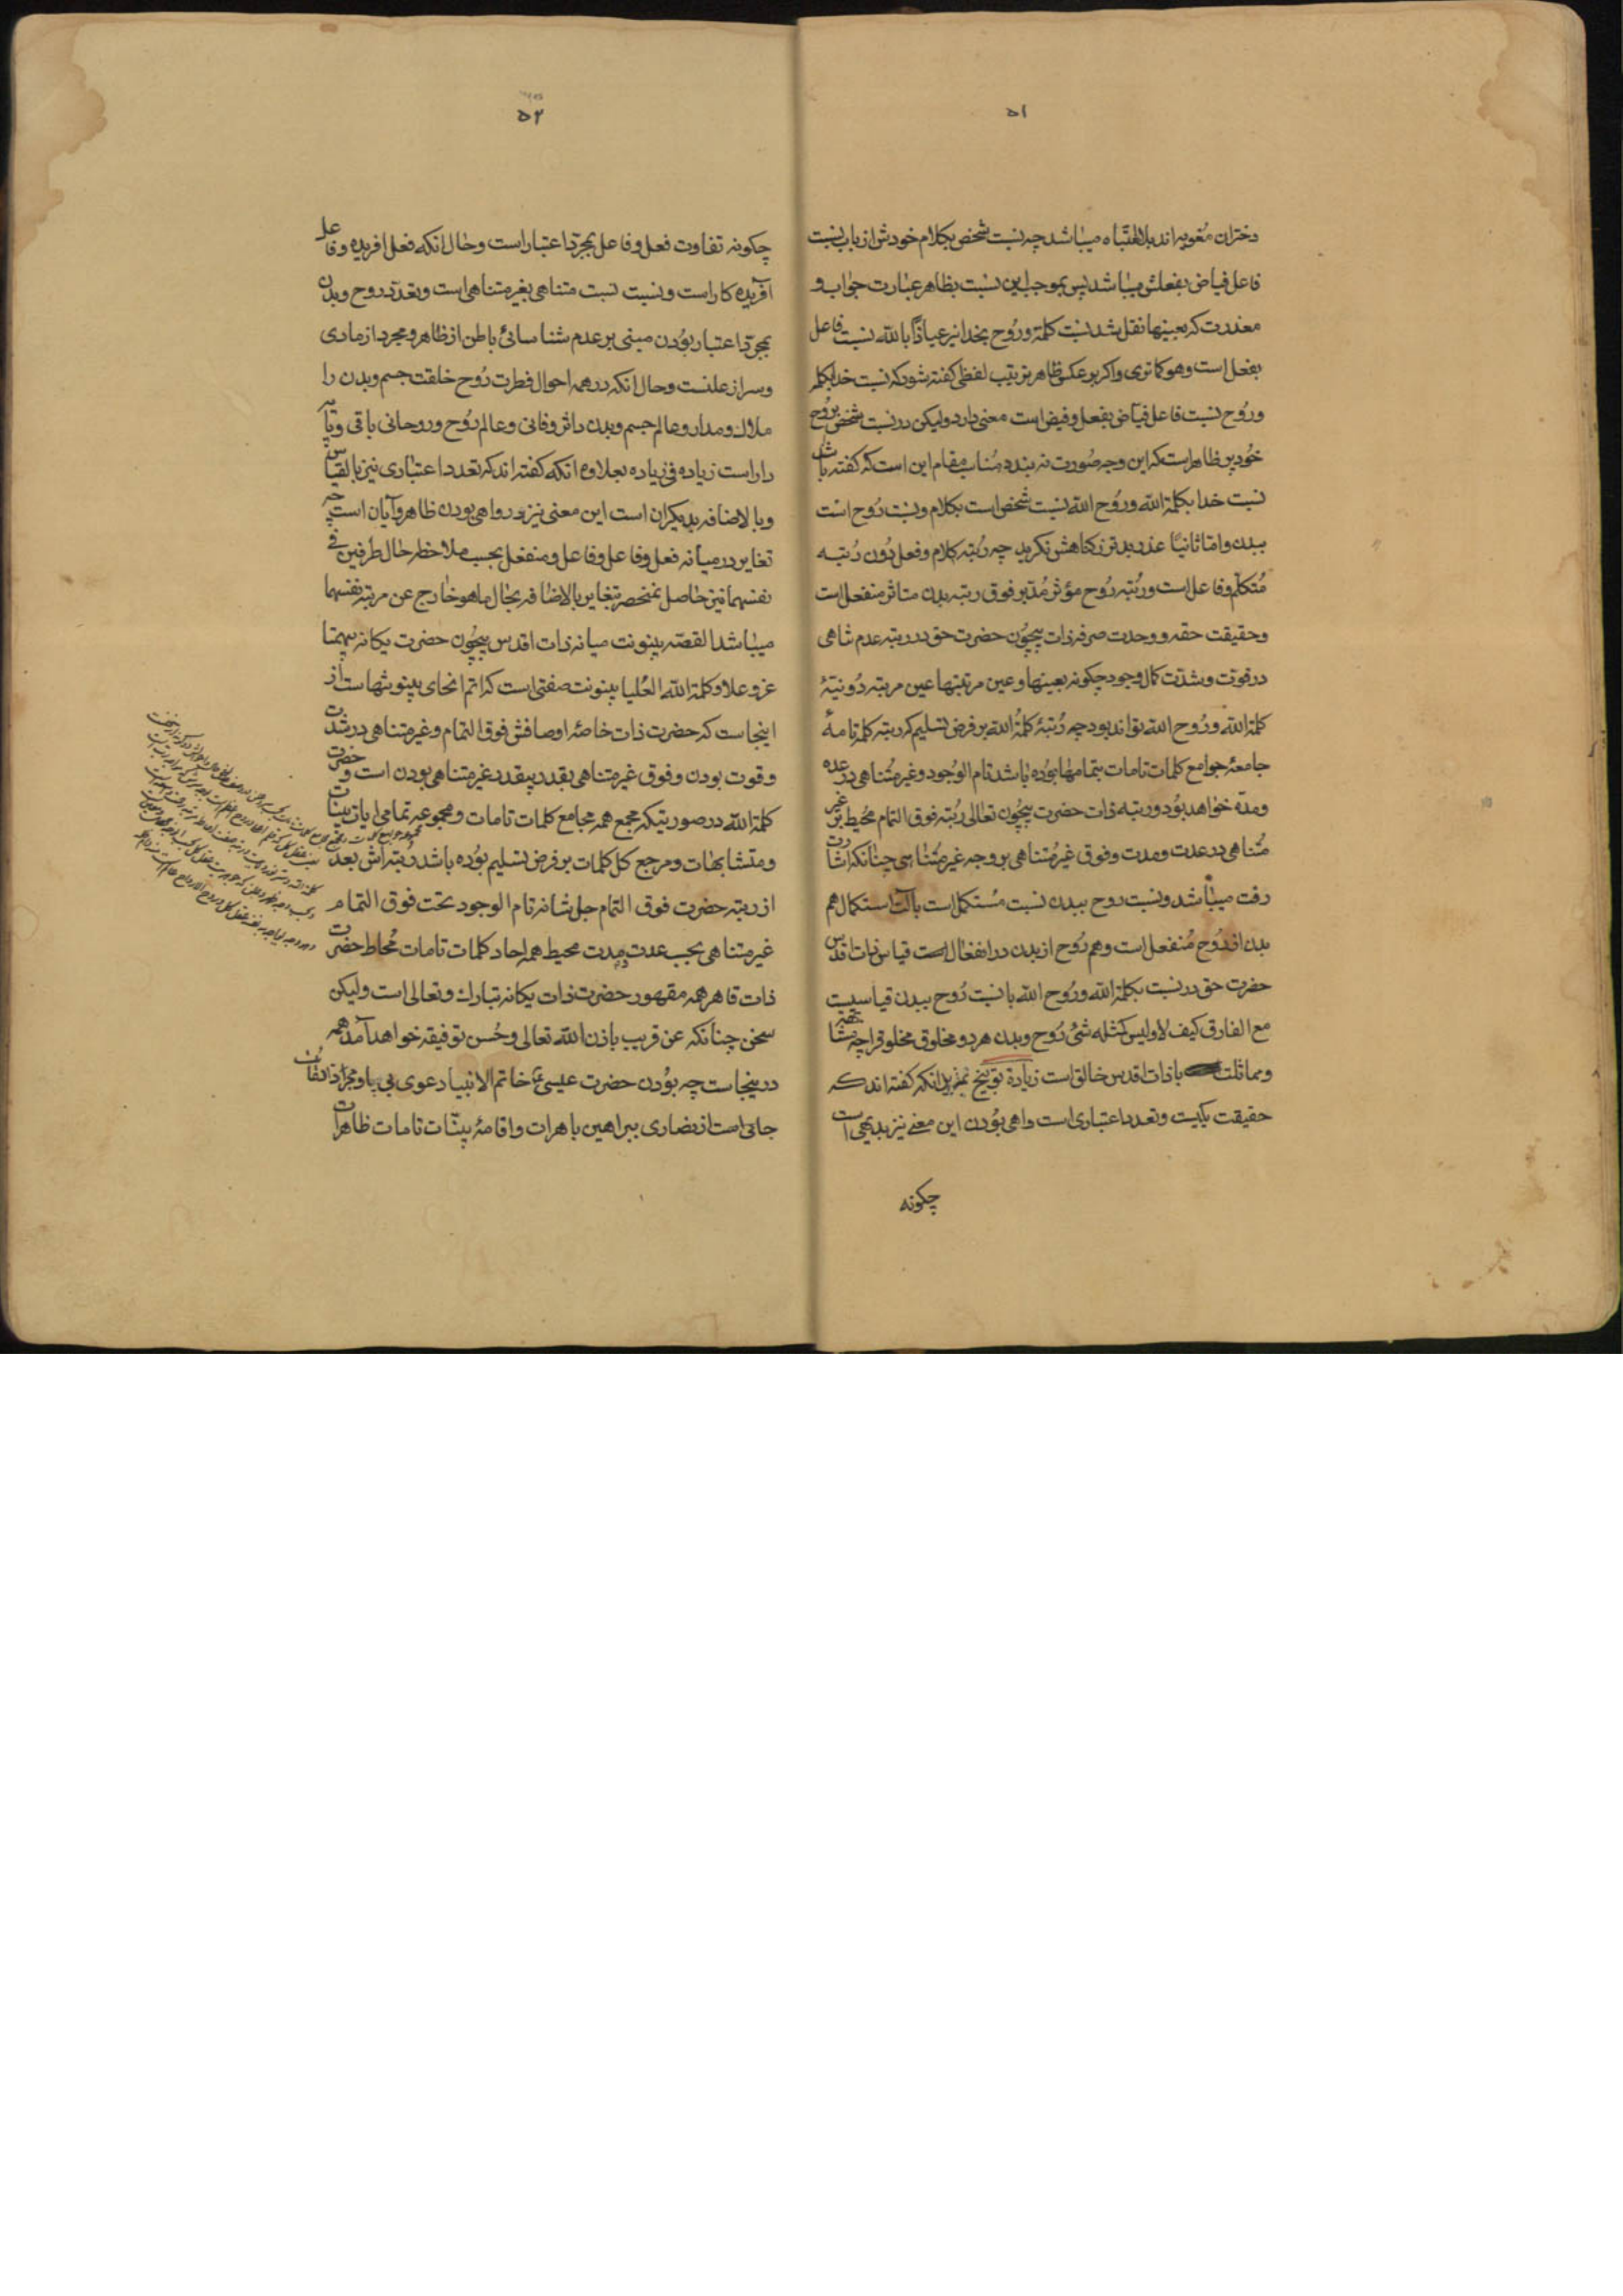 ۵۱
دختران مغویه اند بلا اشتباه میباشد چه نسبت شخص بکلام خودش از باب نسبت
فاعل فیاض بفعلش میباشد پس بموجب این نسبت بظاهر عبارت جواب و
معذرت که بعینها نقل شد نسبت کلمة و رُوح بخدا نیز عیاذاً بالله نسبت فاعل
بفعل است وهو کما تری واکر بر عکس ظاهر ترتیب لفظی کفته شود که نسبت خدا بکلمه
ورُوح نسبت فاعل فیّاض بفعل وفیض است معنی دارد ولیکن در نسبت شخص بروح
خود پر ظاهر است که این وجه صُورت نه بندد مُناسب مقام این است که کفته باشد
نسبت خدا بکلمة الله ورُوح الله نسبت شخص است بکلام ونسبت رُوح است
ببدن واما ثانیًا عذر بدتر از کناهش نکرید چه رُتبه کلام وفعل دُون رُتبه
مُتکلّم وفاعل است ورُتبه رُوح مؤثر مُدبر فوق رتبه بدن متاثر منفعل است
وحقیقت حقه و وحدت صرفه ذات بیچوُن حضرت حق در رتبه عدم تناهی
در قوّت وشدّت کمال وجود چکونه بعینها وعین مرتبتها عین مرتبه دُونیّهٔ
کلمة الله ورُوح الله تواند بود چه رُتبهٔ کلمةُ الله بر فرض تسلیم که رتبه کلمه تامهٔ
جامعهٔ جوامع کلمات تامات بتمامها بوُده باشد تام الوُجود وغیر مُتناهی در عده
ومدّة خواهد بوُد ورتبه ذات حضرت بیچوُن تعالی رُتبه فوق التمام محُیط بر غیر
مُتناهی در عدت ومدت وفوق غیر مُتناهی بر وجه غیر مُتناهی چنانکه اشارت
رفت میباشد ونسبت روح ببدن نسبت مُستکمل است بآلت استکمال هم
بدن از رُوح مُنفعل است وهم رُوح از بدن در انفعال است قیاس ذات اقدس
حضرت حق در نسبت بکلمة الله ورُوح الله با نسبت رُوح ببدن قیاسیست
مع الفارق کیف لا ولیس کمثله شئ رُوح وبدن هر دو مخلوق مخلوق را چه مشابهت
ومماثلت با ذات اقدس خالق است زیادة توبیخ بمزید انکه کفته اند که
حقیقت یکیست وتعدد اعتباری است واهی بوُدن این معنی نیز بدیهی است
چکونه
۵۲
چکونه تفاوت فعل وفاعل بمجرّد اعتبار است وحال انکه فعل افریده وفاعل
آفریده کار است ونسبت نسبت متناهی بغیر متناهی است وتعدّد روح وبدن
بمجرّد اعتبار بوُدن مبنی بر عدم شناسائی باطن از ظاهر ومجرد از مادی
وسر از علنست وحال انکه در همه احوال فطرت رُوح خلقت جسم وبدن را
ملاك ومدار وعالم جسم وبدن داثر وفانی وعالم رُوح وروحانی باقی وپایه
دار است زیاده فی زیاده بعلاوه انکه کفته اند که تعدد اعتباری نیز بالقیاس
وبالاضافه بدیکران است این معنی نیز در واهی بودن ظاهر وآیان است چه
تغایر در میانه فعل وفاعل وفاعل ومنفعل بحسب ملاحظه حال طرفین فی
نفسهما نیز حاصل نمنحصر بتغایر بالاضافه بحال ماهو خارج عن مرتبه نفسهما
میباشد القصّه بینونت میانه ذات اقدس بیچوُن حضرت یکانه بیهمتا
عز وعلا وکلمة الله العُلیا بینونت صفتی است که اتم انحای بینونتهاست از
اینجاست که حضرت ذات خاصهٔ اوصافش فوق التمام وغیر متناهی در شدت
وقوت بودن وفوق غیر متناهی بقدر بیقدر غیر متناهی بودن است وحضرت
کلمة الله در صورتیکه مجمع همه مجامع کلمات تامات ومجموعه تمامی ایات بینات
ومتشابهات ومرجع کل کلمات بر فرض تسلیم بوُده باشد رُتبه اش بعد
از رتبه حضرت فوق التمام جل شانه تام الوجود تحت فوق التمام
غیر متناهی بحسب عدت ومدت محیط همه احاد کلمات تامات مُحاط حضرت
ذات قاهر همه مقهور حضرت ذات یکانه تبارك وتعالی است ولیکن
سخن چنانکه عن قریب باذن الله تعالی وحُسن توفیقه خواهد آمد همه
در ینجاست چه بوُدن حضرت عیسی خاتم الانبیا دعوی بی پا ومجرّد اتفاف
جاتی است از نصاری ببراهین باهرات واقامهٔ بینّات تامات ظاهرات